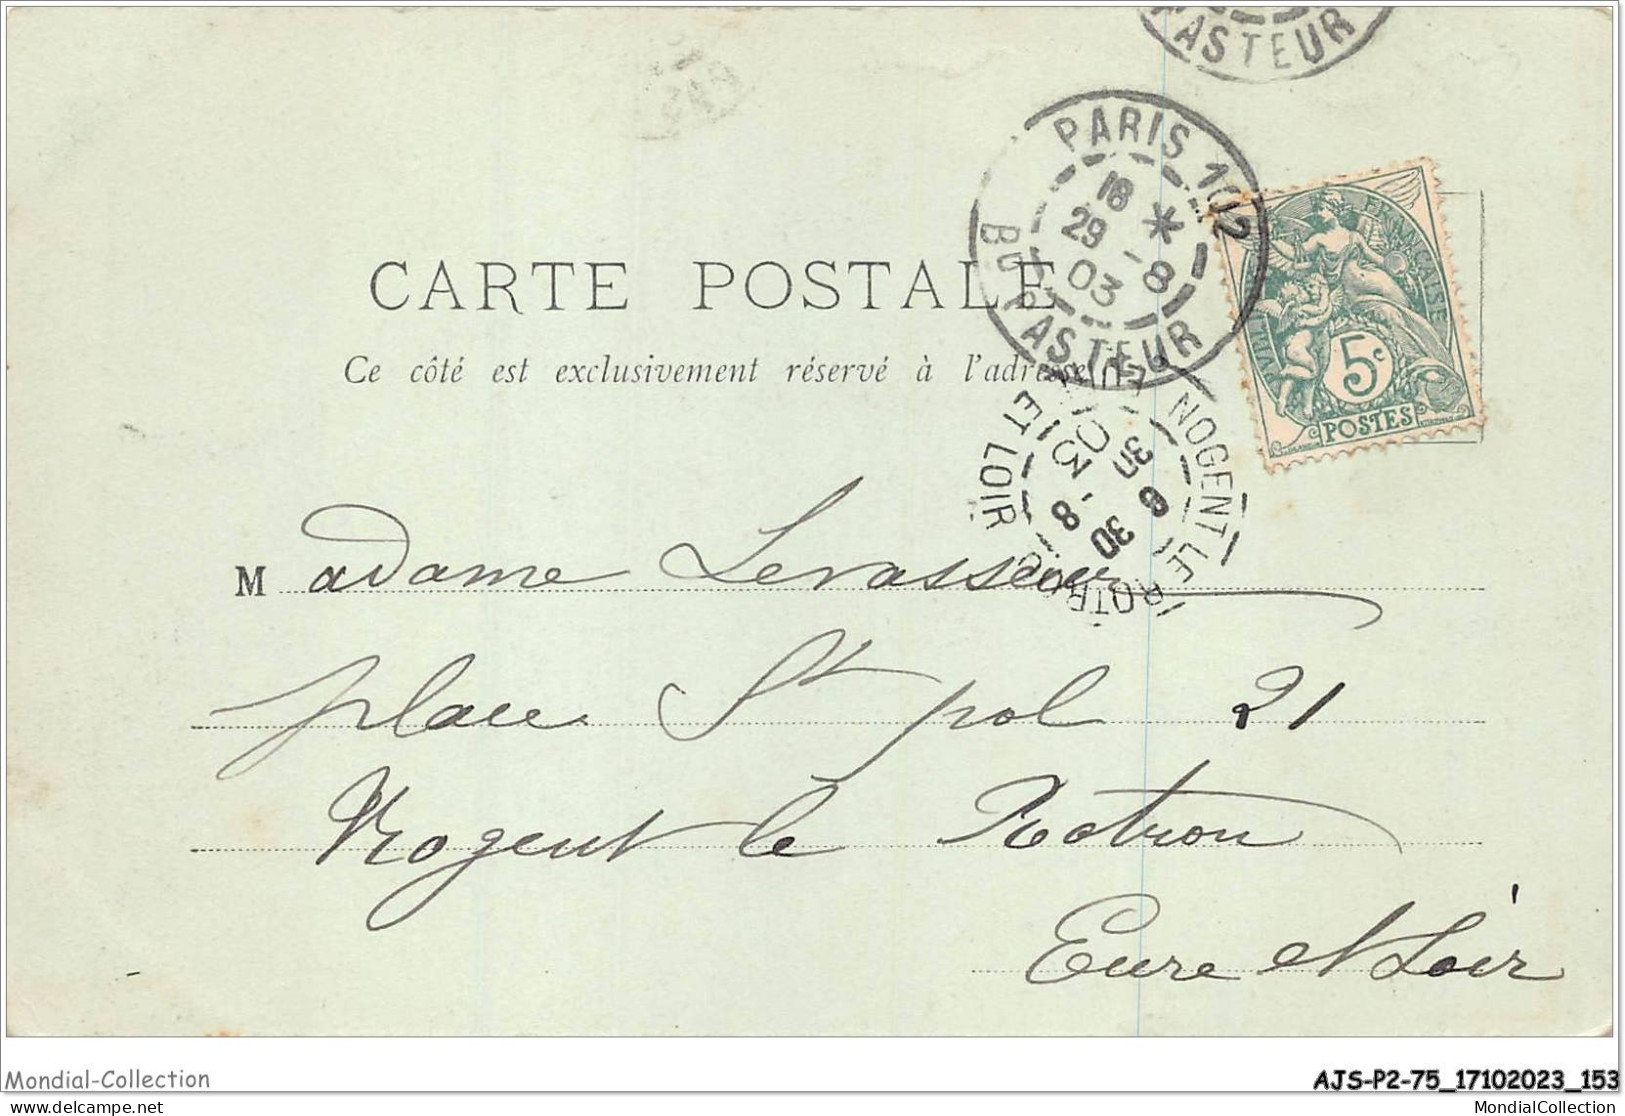 PASTEUR
PARIS 102
18 *
29 -8
03
BD PASTEUR
RÉPUBLIQUE FRANÇAISE
5c
POSTES
CARTE POSTALE
Ce côté est exclusivement réservé à l'adresse
NOGENT LE ROTROU
6 30
30 -8
03
EURE ET LOIR
Madame Levasseur
place St pol 21
Nogent le Rotrou
Eure et Loir
Mondial-Collection
AJS-P2-75_17102023_153
delcampe.net
MondialCollection